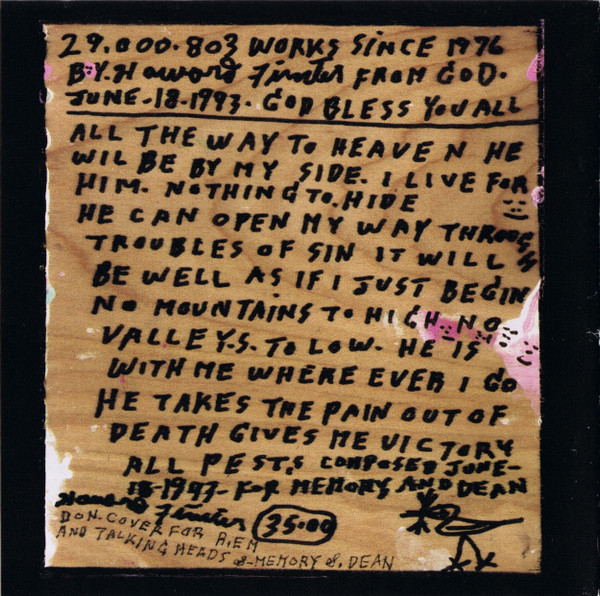 29.000.803 WORKS SINCE 1976
BY. Howard Finster FROM GOD.
JUNE-18-1993. GOD BLESS YOU ALL
ALL THE WAY TO HEAVEN HE
WIL BE BY MY SIDE. I LIVE FOR
HIM. NOTHING TO. HIDE
HE CAN OPEN MY WAY THROUG
TROUBLES OF SIN IT WILL
BE WELL AS IF I JUST BEGIN
NO MOUNTAINS TO HIGH NO
VALLEY.S. TO LOW. HE IS
WITH ME WHERE EVER I GO
HE TAKES THE PAIN OUT OF
DEATH GIVES ME VICTORY
ALL PEST,S COMPOSED JUNE-
18-1997-FOR MEMORY AND DEAN
Howard Finster 35.00
DON-COVER FOR R.EM
AND TALKING HEADS &-MEMORY &. DEAN